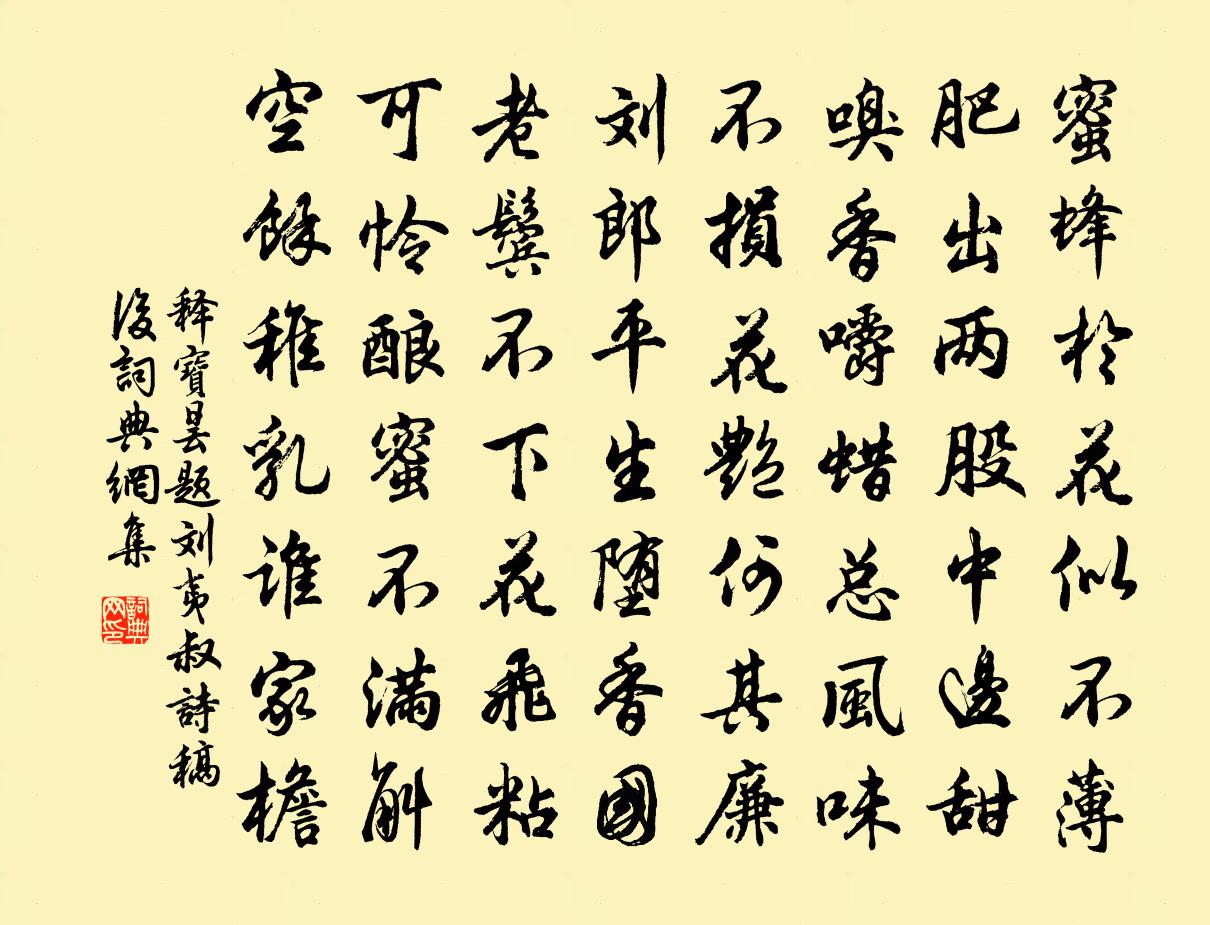 蜜蜂於花似不薄
肥出两股中邊甜
嗅香嚼蜡总風味
不損花艷何其廉
刘郎平生堕香國
老鬓不下花飛粘
可怜酿蜜不满斛
空餘稚乳谁家檐
释寶昙题刘夷叔詩稿
後詞典網集
詞典网印